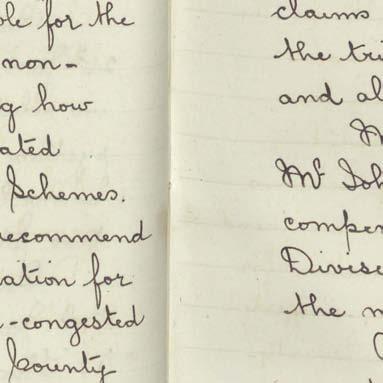 ble for the
non-
g how
ated
Schemes.
recommend
ation for
-congested
County
claims
the tri
and al
M
Mr Joh
comper
Divise
the m